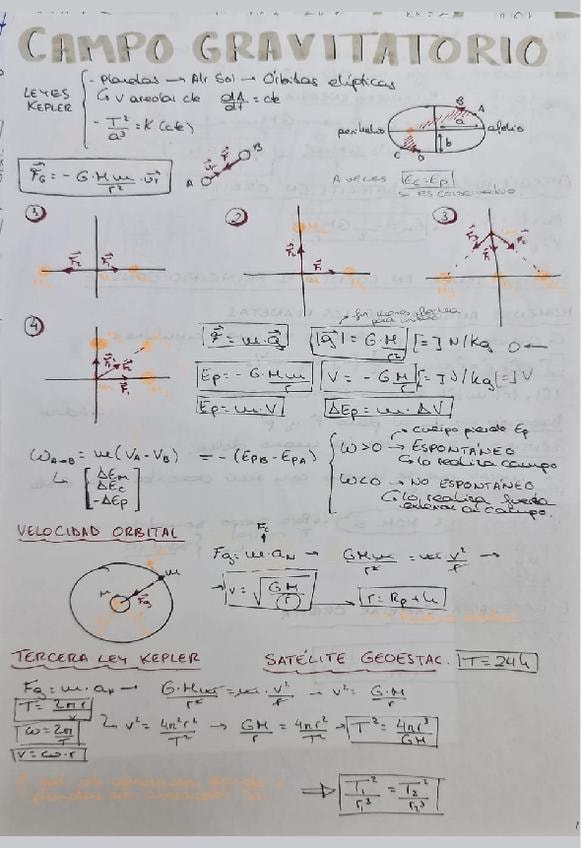 CAMPO GRAVITATORIO
LEYES KEPLER
- Planetas → Alr Sol → Órbitas elípticas
G V areolar cte dA/dt = cte
- T²/a³ = K (cte)
perihelio
afelio
B A
a
b
C D
F⃗G = - G·M·m/r² · u⃗r
A
B
A veces Ec=Ep
→ es conservativo
1
F⃗2 F⃗1
2
F⃗2
F⃗1
3
F⃗2 F⃗1
4
F⃗2
F⃗1
F⃗ = m·g⃗
|g⃗| = G·M/r² [=] N/kg
Ep = - G·M·m/r
V = - G·M/r [=] J/kg [=] V
Ep = m·V
ΔEp = m·ΔV
→ cuerpo pierde Ep
WA→B = m(VA - VB) = - (EpB - EpA)
ΔEm
ΔEc
-ΔEp
W>0 → ESPONTÁNEO
G lo realiza campo
W<0 → NO ESPONTÁNEO
G lo realiza fuerza
externa al campo.
VELOCIDAD ORBITAL
M
m
Fg
Fc
Fg = m·aN → GMm/r² = m v²/r →
→ v = √(GM/r) → r = Rp + h
TERCERA LEY KEPLER
SATÉLITE GEOESTAC. T = 24h
Fg = m·aN → G·M·m/r² = m·v²/r → v² = G·M/r
T = 2πr/v
ω = 2π/T
v = ω·r
v² = 4π²r²/T² → GM/r = 4πr²/T² → T² = 4πr³/GM
⇒ T1²/r1³ = T2²/r2³